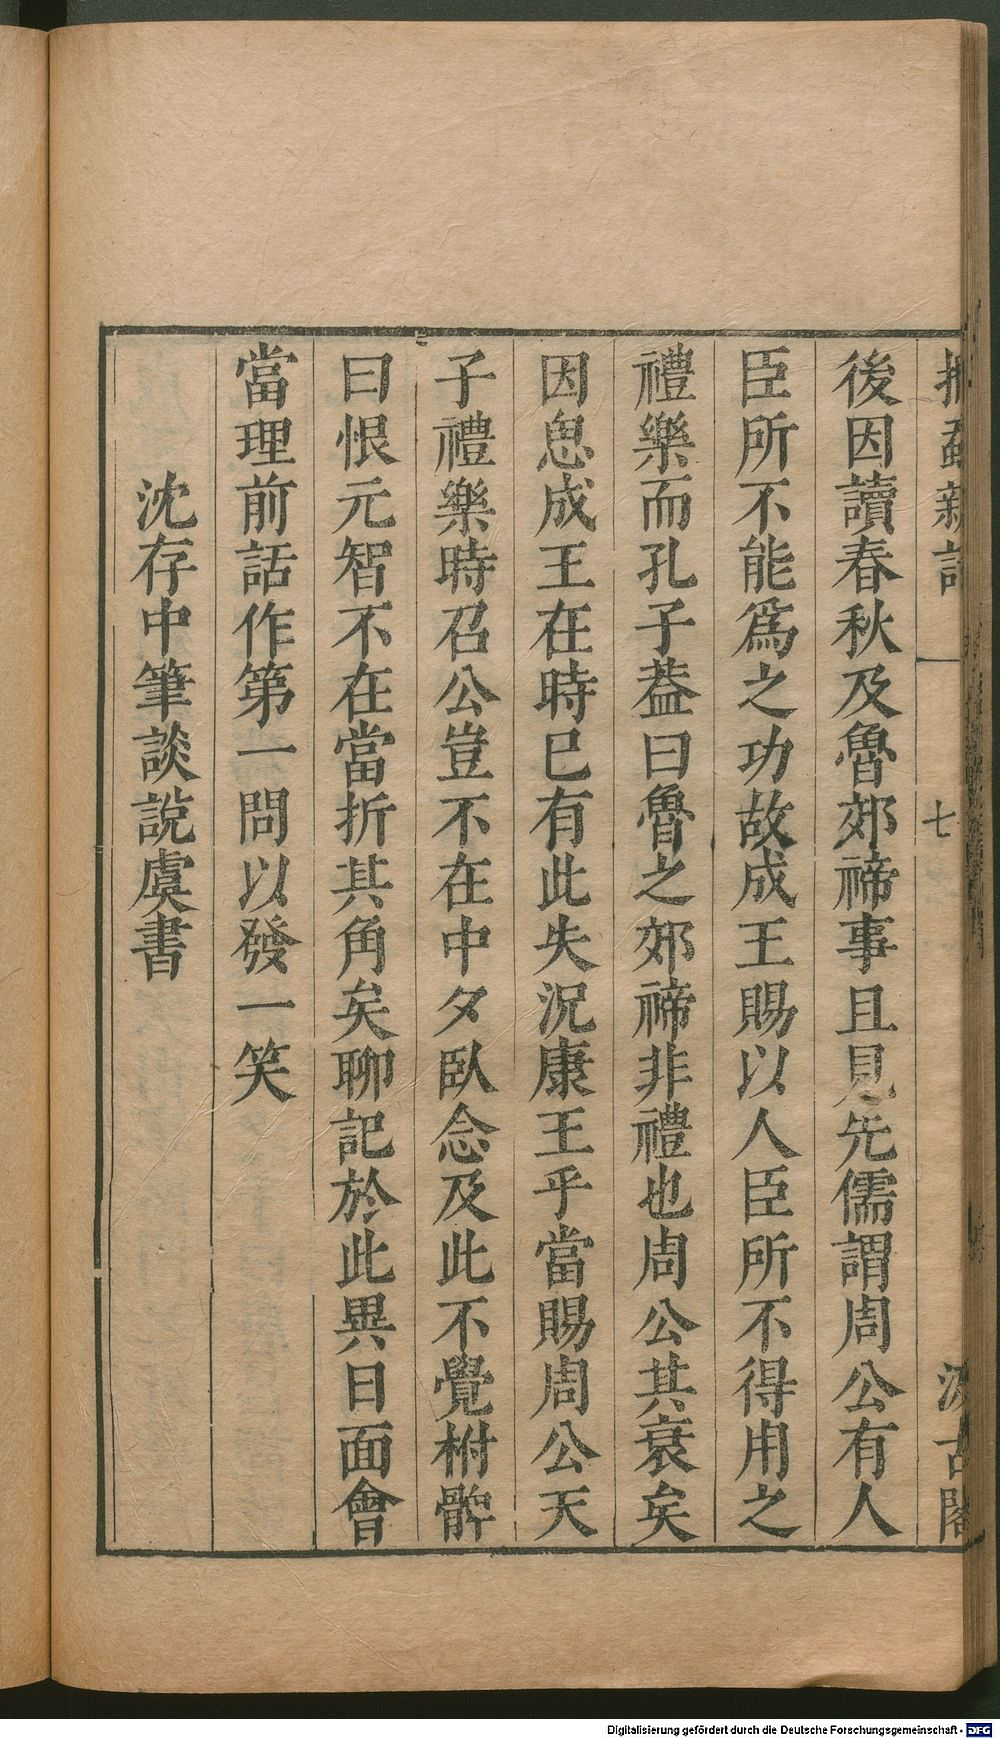 捫蝨新話 七 汲古閣
後因讀春秋及魯郊禘事且見先儒謂周公有人
臣所不能爲之功故成王賜以人臣所不得用之
禮樂而孔子葢曰魯之郊禘非禮也周公其衰矣
因思成王在時已有此失況康王乎當賜周公天
子禮樂時召公豈不在中夕臥念及此不覺柎髀
曰恨元智不在當折其角矣聊記於此異日面會
當理前話作第一問以發一笑
沈存中筆談說虞書
Digitalisierung gefördert durch die Deutsche Forschungsgemeinschaft - DFG